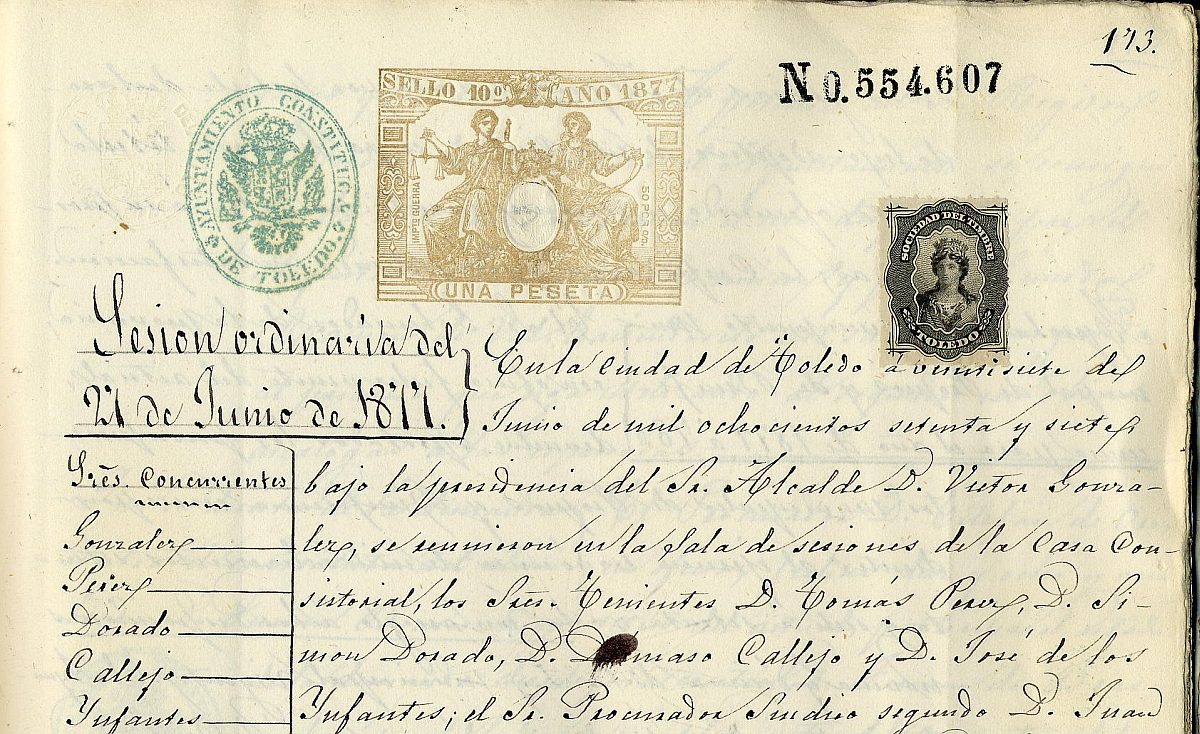 173.
No. 554.607
AYUNTAMIENTO CONSTITUC.
DE TOLEDO
SELLO 10º AÑO 1877
IMPTO GUERRA
50 PCS CTS
UNA PESETA
SOCIEDAD DEL TIMBRE
TOLEDO
Sesion ordinaria del
27 de Junio de 1877.
En la ciudad de Toledo a veintisiete de
Junio de mil ochocientos setenta y siete
Sres. Concurrentes
Gonzalez
Perez
Dorado
Callejo
Ynfantes
bajo la presidencia del Sr. Alcalde D. Victor Gonza-
lez, se reunieron en la Sala de sesiones de la Casa Con-
sistorial, los Sres. Tenientes D. Tomás Perez, D. Si-
mon Dorado, D. Damaso Callejo y D. José de los
Ynfantes; el Sr. Procurador Sindico segundo D. Juan